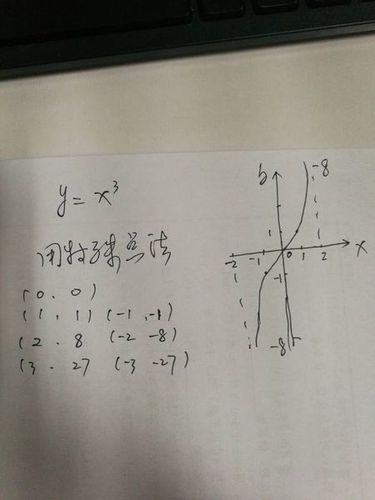 y = x³
用特殊点法
(0. 0)
(1. 1) (-1 .-1)
(2. 8 (-2 -8)
(3. 27 (-3 -27)
-8
1
x
-2 -1 0 1 2
-1
-8